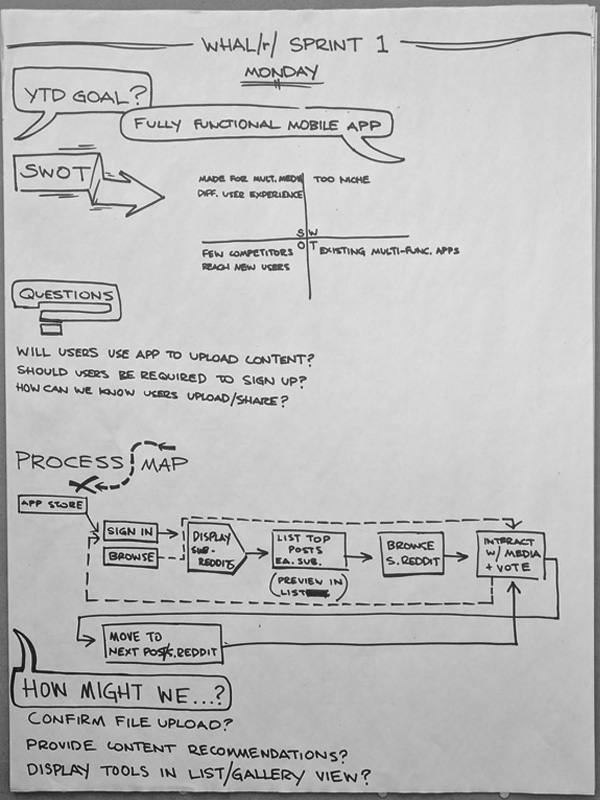 WHAL/r/ SPRINT 1
MONDAY
YTD GOAL?
FULLY FUNCTIONAL MOBILE APP
SWOT
MADE FOR MULT. MEDIA
DIFF. USER EXPERIENCE
TOO NICHE
S W
O T
FEW COMPETITORS
REACH NEW USERS
EXISTING MULTI-FUNC. APPS
QUESTIONS
WILL USERS USE APP TO UPLOAD CONTENT?
SHOULD USERS BE REQUIRED TO SIGN UP?
HOW CAN WE KNOW USERS UPLOAD/SHARE?
PROCESS MAP
APP STORE
SIGN IN
BROWSE
DISPLAY
SUB-
REDDITS
LIST TOP
POSTS
EA. SUB.
(PREVIEW IN
LIST)
BROWSE
S.REDDIT
INTERACT
W/ MEDIA
+ VOTE
MOVE TO
NEXT POST/S.REDDIT
HOW MIGHT WE...?
CONFIRM FILE UPLOAD?
PROVIDE CONTENT RECOMMENDATIONS?
DISPLAY TOOLS IN LIST/GALLERY VIEW?